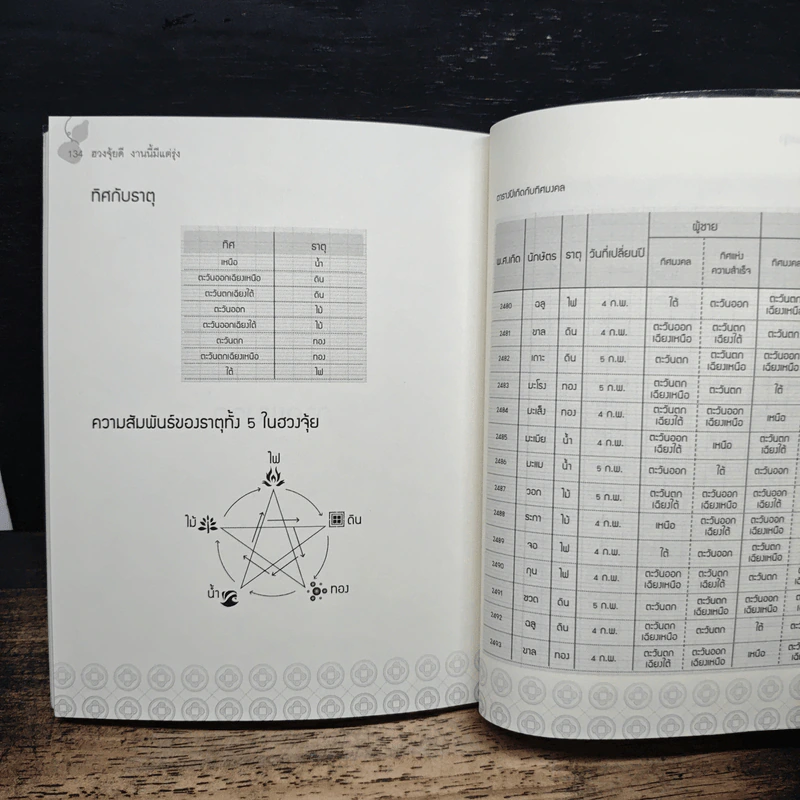 134 ฮวงจุ้ยดี งานนี้มีแต่รุ่ง
ทิศกับธาตุ
ทิศ ธาตุ
เหนือ น้ำ
ตะวันออกเฉียงเหนือ ดิน
ตะวันตกเฉียงใต้ ดิน
ตะวันออก ไม้
ตะวันออกเฉียงใต้ ไม้
ตะวันตก ทอง
ตะวันตกเฉียงเหนือ ทอง
ใต้ ไฟ
ความสัมพันธ์ของธาตุทั้ง 5 ในฮวงจุ้ย
ไฟ
ไม้ ดิน
น้ำ ทอง
ตารางปีเกิดกับทิศมงคล
ผู้ชาย
พ.ศ.เกิด นักษัตร ธาตุ วันที่เปลี่ยนปี ทิศมงคล ทิศแห่งความสำเร็จ ทิศมงคล
2480 ฉลู ไฟ 4 ก.พ. ใต้ ตะวันออก ตะวันออกเฉียงเหนือ
2481 ขาล ดิน 4 ก.พ. ตะวันออกเฉียงเหนือ ตะวันตกเฉียงใต้ ตะวันตก
2482 เถาะ ดิน 5 ก.พ. ตะวันตก ตะวันตกเฉียงเหนือ ตะวันออกเฉียงเหนือ
2483 มะโรง ทอง 5 ก.พ. ตะวันตกเฉียงเหนือ ตะวันตก ใต้
2484 มะเส็ง ทอง 4 ก.พ. ตะวันตกเฉียงใต้ ตะวันออกเฉียงเหนือ เหนือ
2485 มะเมีย น้ำ 4 ก.พ. ตะวันออกเฉียงใต้ เหนือ ตะวันตกเฉียงใต้
2486 มะแม น้ำ 5 ก.พ. ตะวันออก ใต้ ตะวันออก
2487 วอก ไม้ 5 ก.พ. ตะวันตกเฉียงใต้ ตะวันออกเฉียงเหนือ ตะวันออกเฉียงใต้
2488 ระกา ไม้ 4 ก.พ. เหนือ ตะวันออกเฉียงใต้ ตะวันออกเฉียงเหนือ
2489 จอ ไฟ 4 ก.พ. ใต้ ตะวันออก ตะวันตกเฉียงเหนือ
2490 กุน ไฟ 4 ก.พ. ตะวันออกเฉียงเหนือ ตะวันตกเฉียงใต้ ตะวันตก
2491 ชวด ดิน 5 ก.พ. ตะวันตก ตะวันตกเฉียงเหนือ ตะวันออกเฉียงเหนือ
2492 ฉลู ดิน 4 ก.พ. ตะวันตกเฉียงเหนือ ตะวันตก ใต้
2493 ขาล ทอง 4 ก.พ. ตะวันตกเฉียงใต้ ตะวันออกเฉียงเหนือ เหนือ